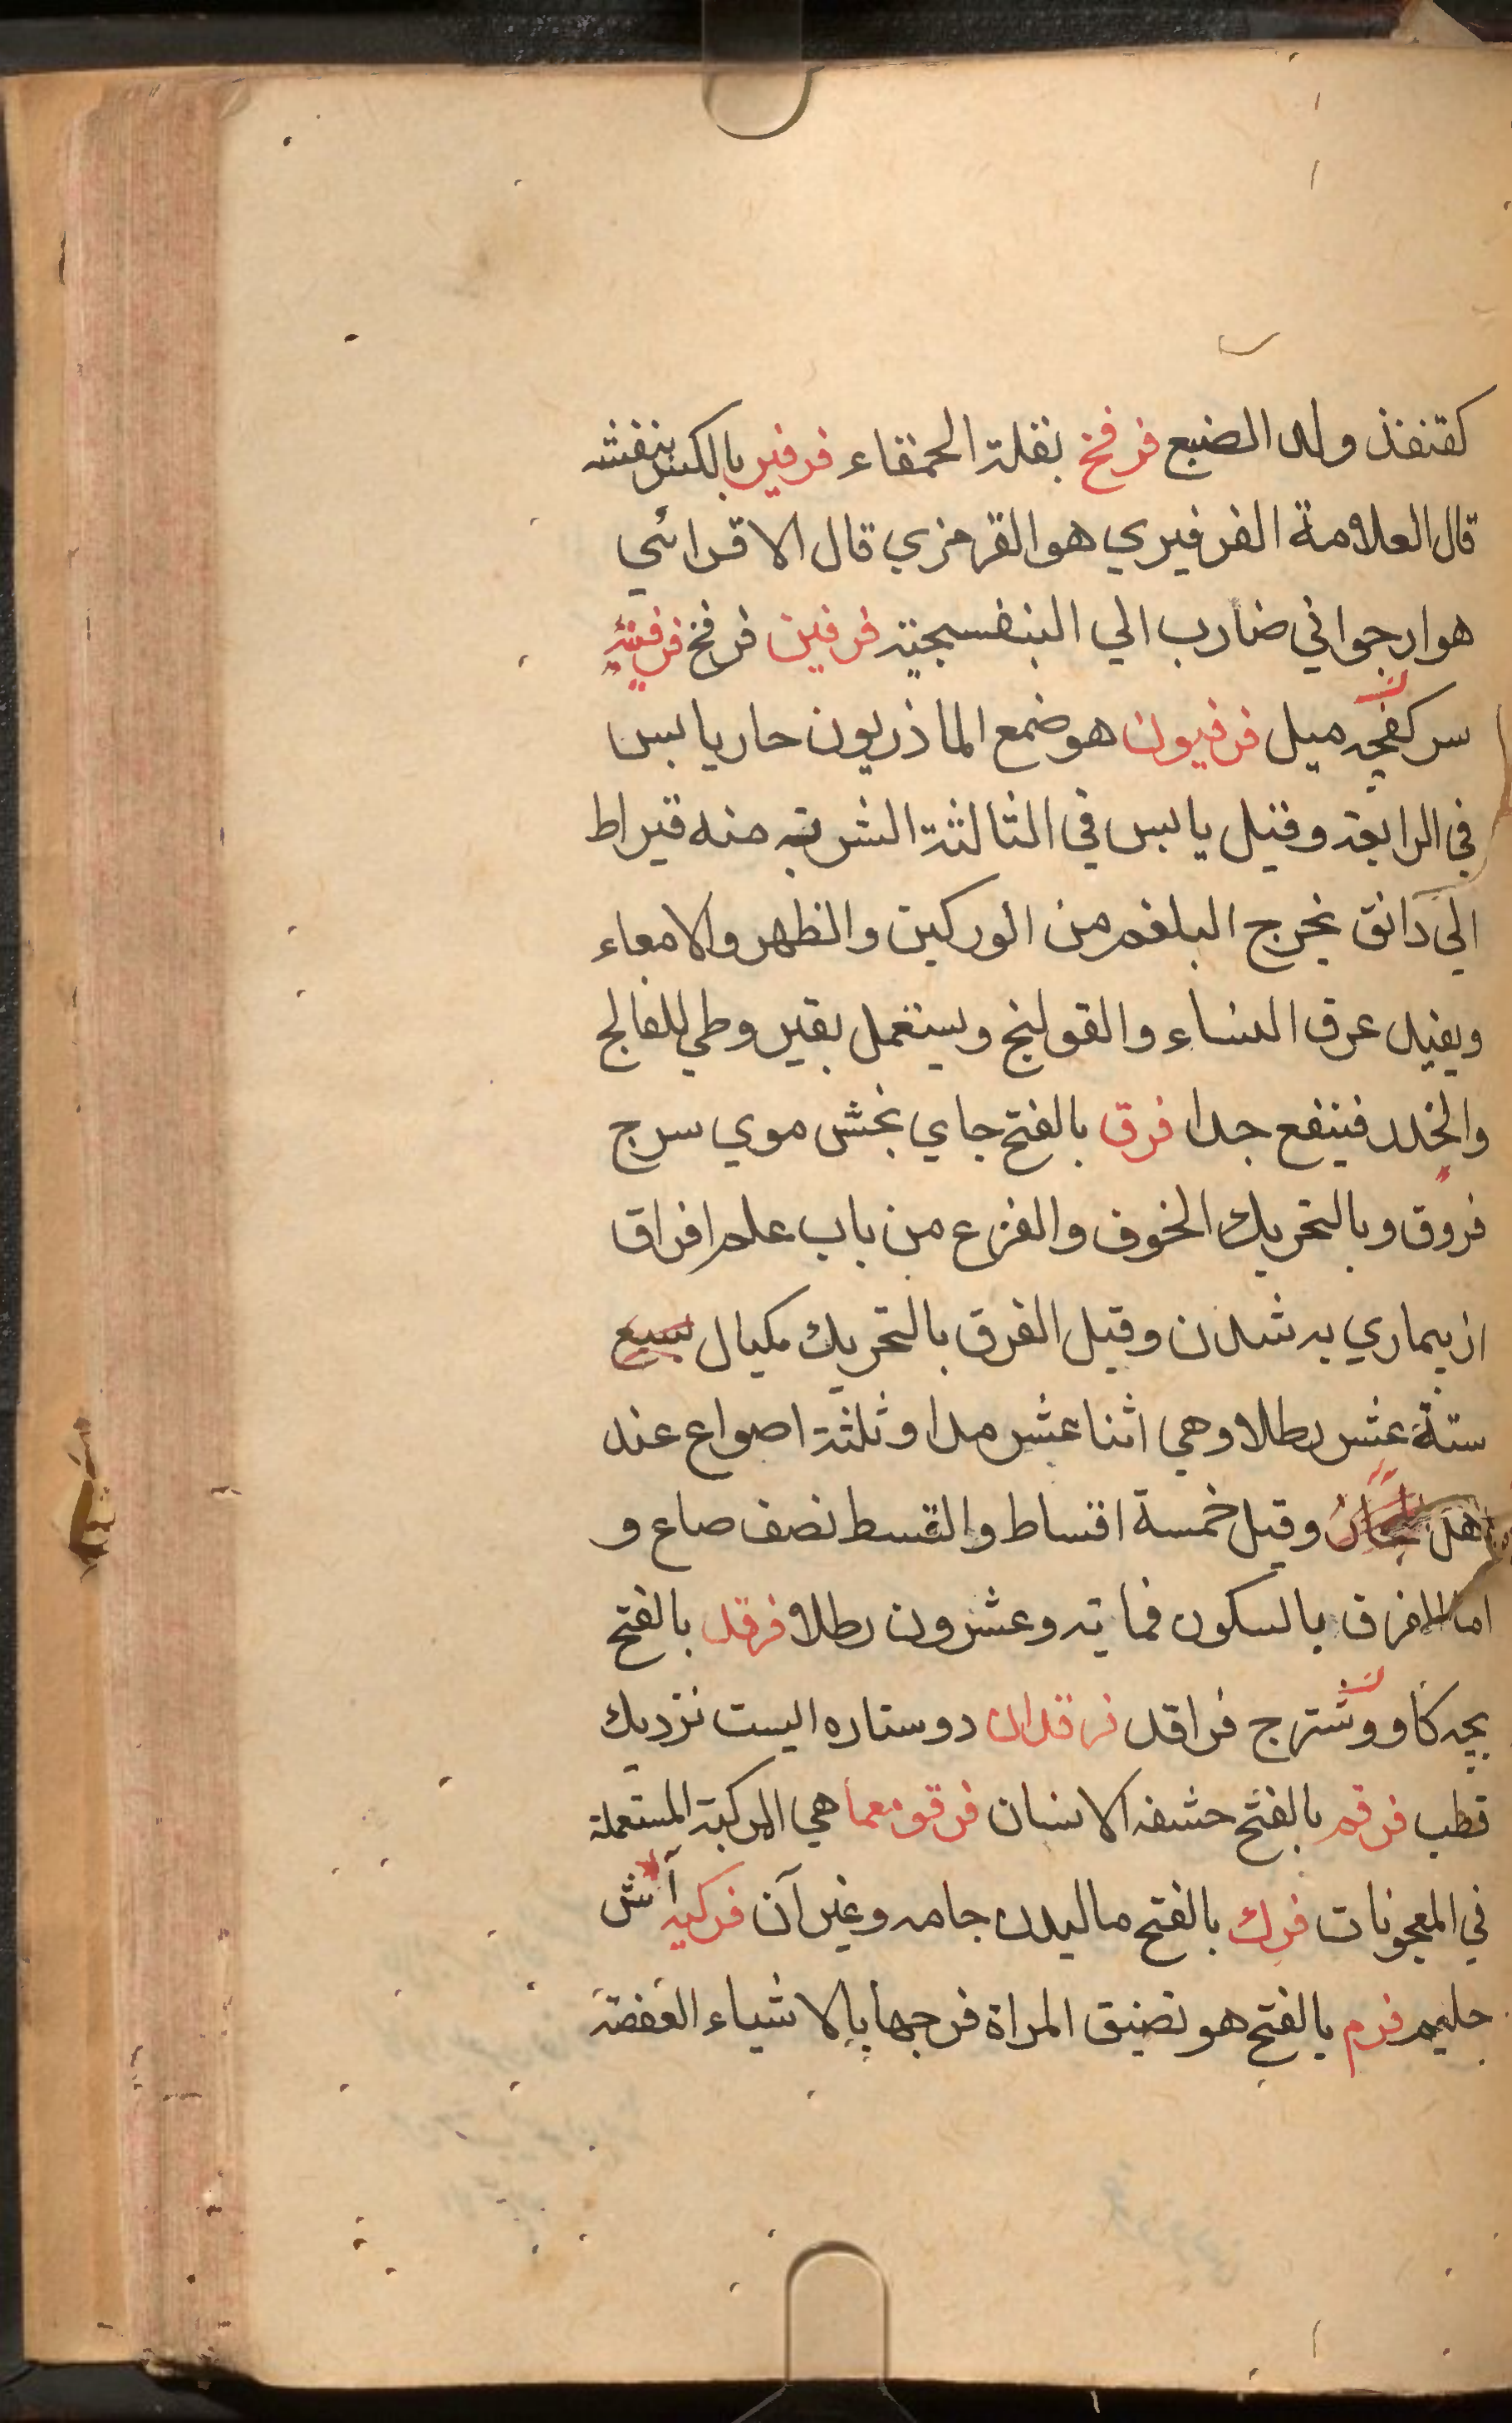 كقنفذ ولد الضبع فرفخ بقلة الحمقاء فرفير بالكسر بنفشه
قال العلامة الفرفيري هو القرمزي قال الاقرائي
هو ارجواني ضارب الي البنفسجية فرفين فرفخ فرفينه
سر كفچه ميل فرفيون هو ضمع الماذريون حار يابس
في الرابعة وقيل يابس في الثالثة الشربه منه قيراط
الي دانق يخرج البلغم من الوركين والظهر والامعاء
ويفيد عرق النساء والقولنج ويستعمل بقيروطي للفالج
والخدر فينفع جدا فرق بالفتح جاي بخش موي سر ج
فروق وبالتحريك الخوف والفزع من باب علم افراق
از بيماري به شدن وقيل الفرق بالتحريك مكيال يسع
ستة عشر رطلا وهي اثنا عشر مدا وثلثة اصواع عند
اهل وقيل خمسة اقساط والقسط نصف صاع و
اما الفرق بالسكون فماية وعشرون رطلا فرقد بالفتح
بچه كاو وشتر ج فراقد فرقدان دو ستاره ايست نزديك
قطب فرقم بالفتح حشفه الانسان فرقومعما هي المركبة المستعملة
في المعجونات فرك بالفتح ماليدن جامه وغير آن فركيه آش
حليم فرم بالفتح هو تضيق المراة فرجها بالاشياء العفصة